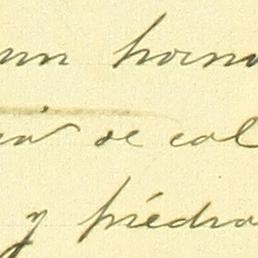 un horno
de cal
y piedra